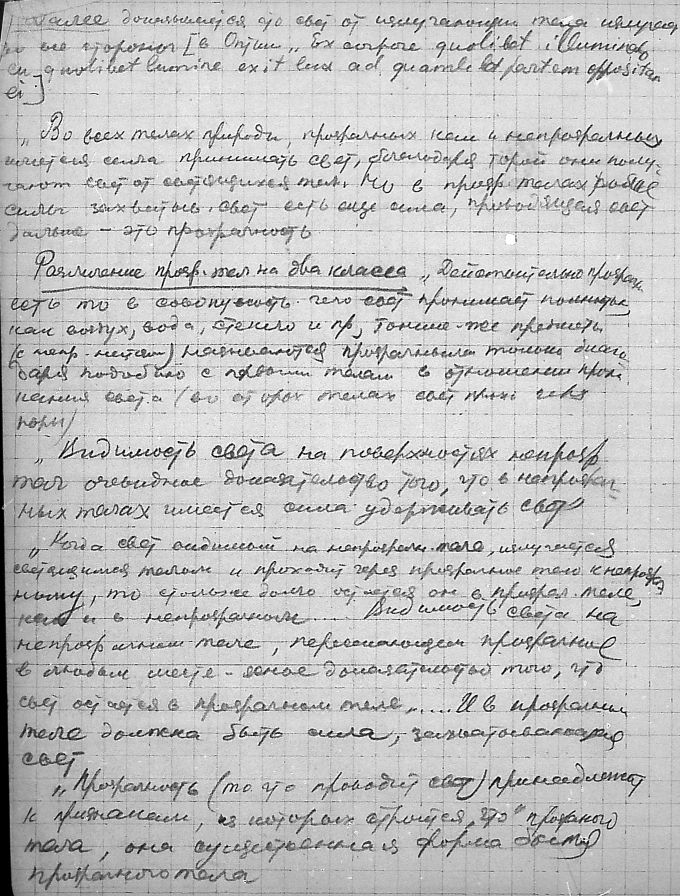 Далее доказывается что свет от излучающих тела излучается
по все стороны [в Оптик „Ex corpore quolibet illuminato
cu quolibet lumine exit lux ad quamlibet partem oppositam
ei]
„Во всех телах природы, прозрачных как и непрозрачных
имеется сила принимать свет, благодаря торой они полу-
чают свет от светящихся тел. Но в прозр телах кроме
силы захватыв. свет есть еще сила, проводящая свет
дальше – это прозрачность
Различение прозр. тел на два класса „Действительно прозрач
есть то в совокупность чего свет проникает полностью,
как воздух, вода, стекло и пр, тонкие же предметы
(к напр. металл) называются прозрачными только благо
даря подобию с первыми телами в отношении прони
кания света (во вторых телах свет прони через
поры)
„Видимость света на поверхностях непрозр
тел очевидное доказательство того, что в непрозрач-
ных телах имеется сила удерживать свет"
„Когда свет видимый на непрозрачн. теле, излучается
светящимся телом и проходит через прозрачное тело к непрозрач
ному, то столь же долго остается он в прозрач. теле,
как и в непрозрачном .... Видимость света на
непрозрачном теле, пересекающем прозрачное
в любом месте – ясное доказательство того, что
свет остается в прозрачном теле ..... И в прозрачном
теле должна быть сила, захватывающая
свет
„Прозрачность (то что проводит свет) принадлежит
к признакам, из которых строится „что" прозрачного
тела, она существенная форма бытия
прозрачного тела